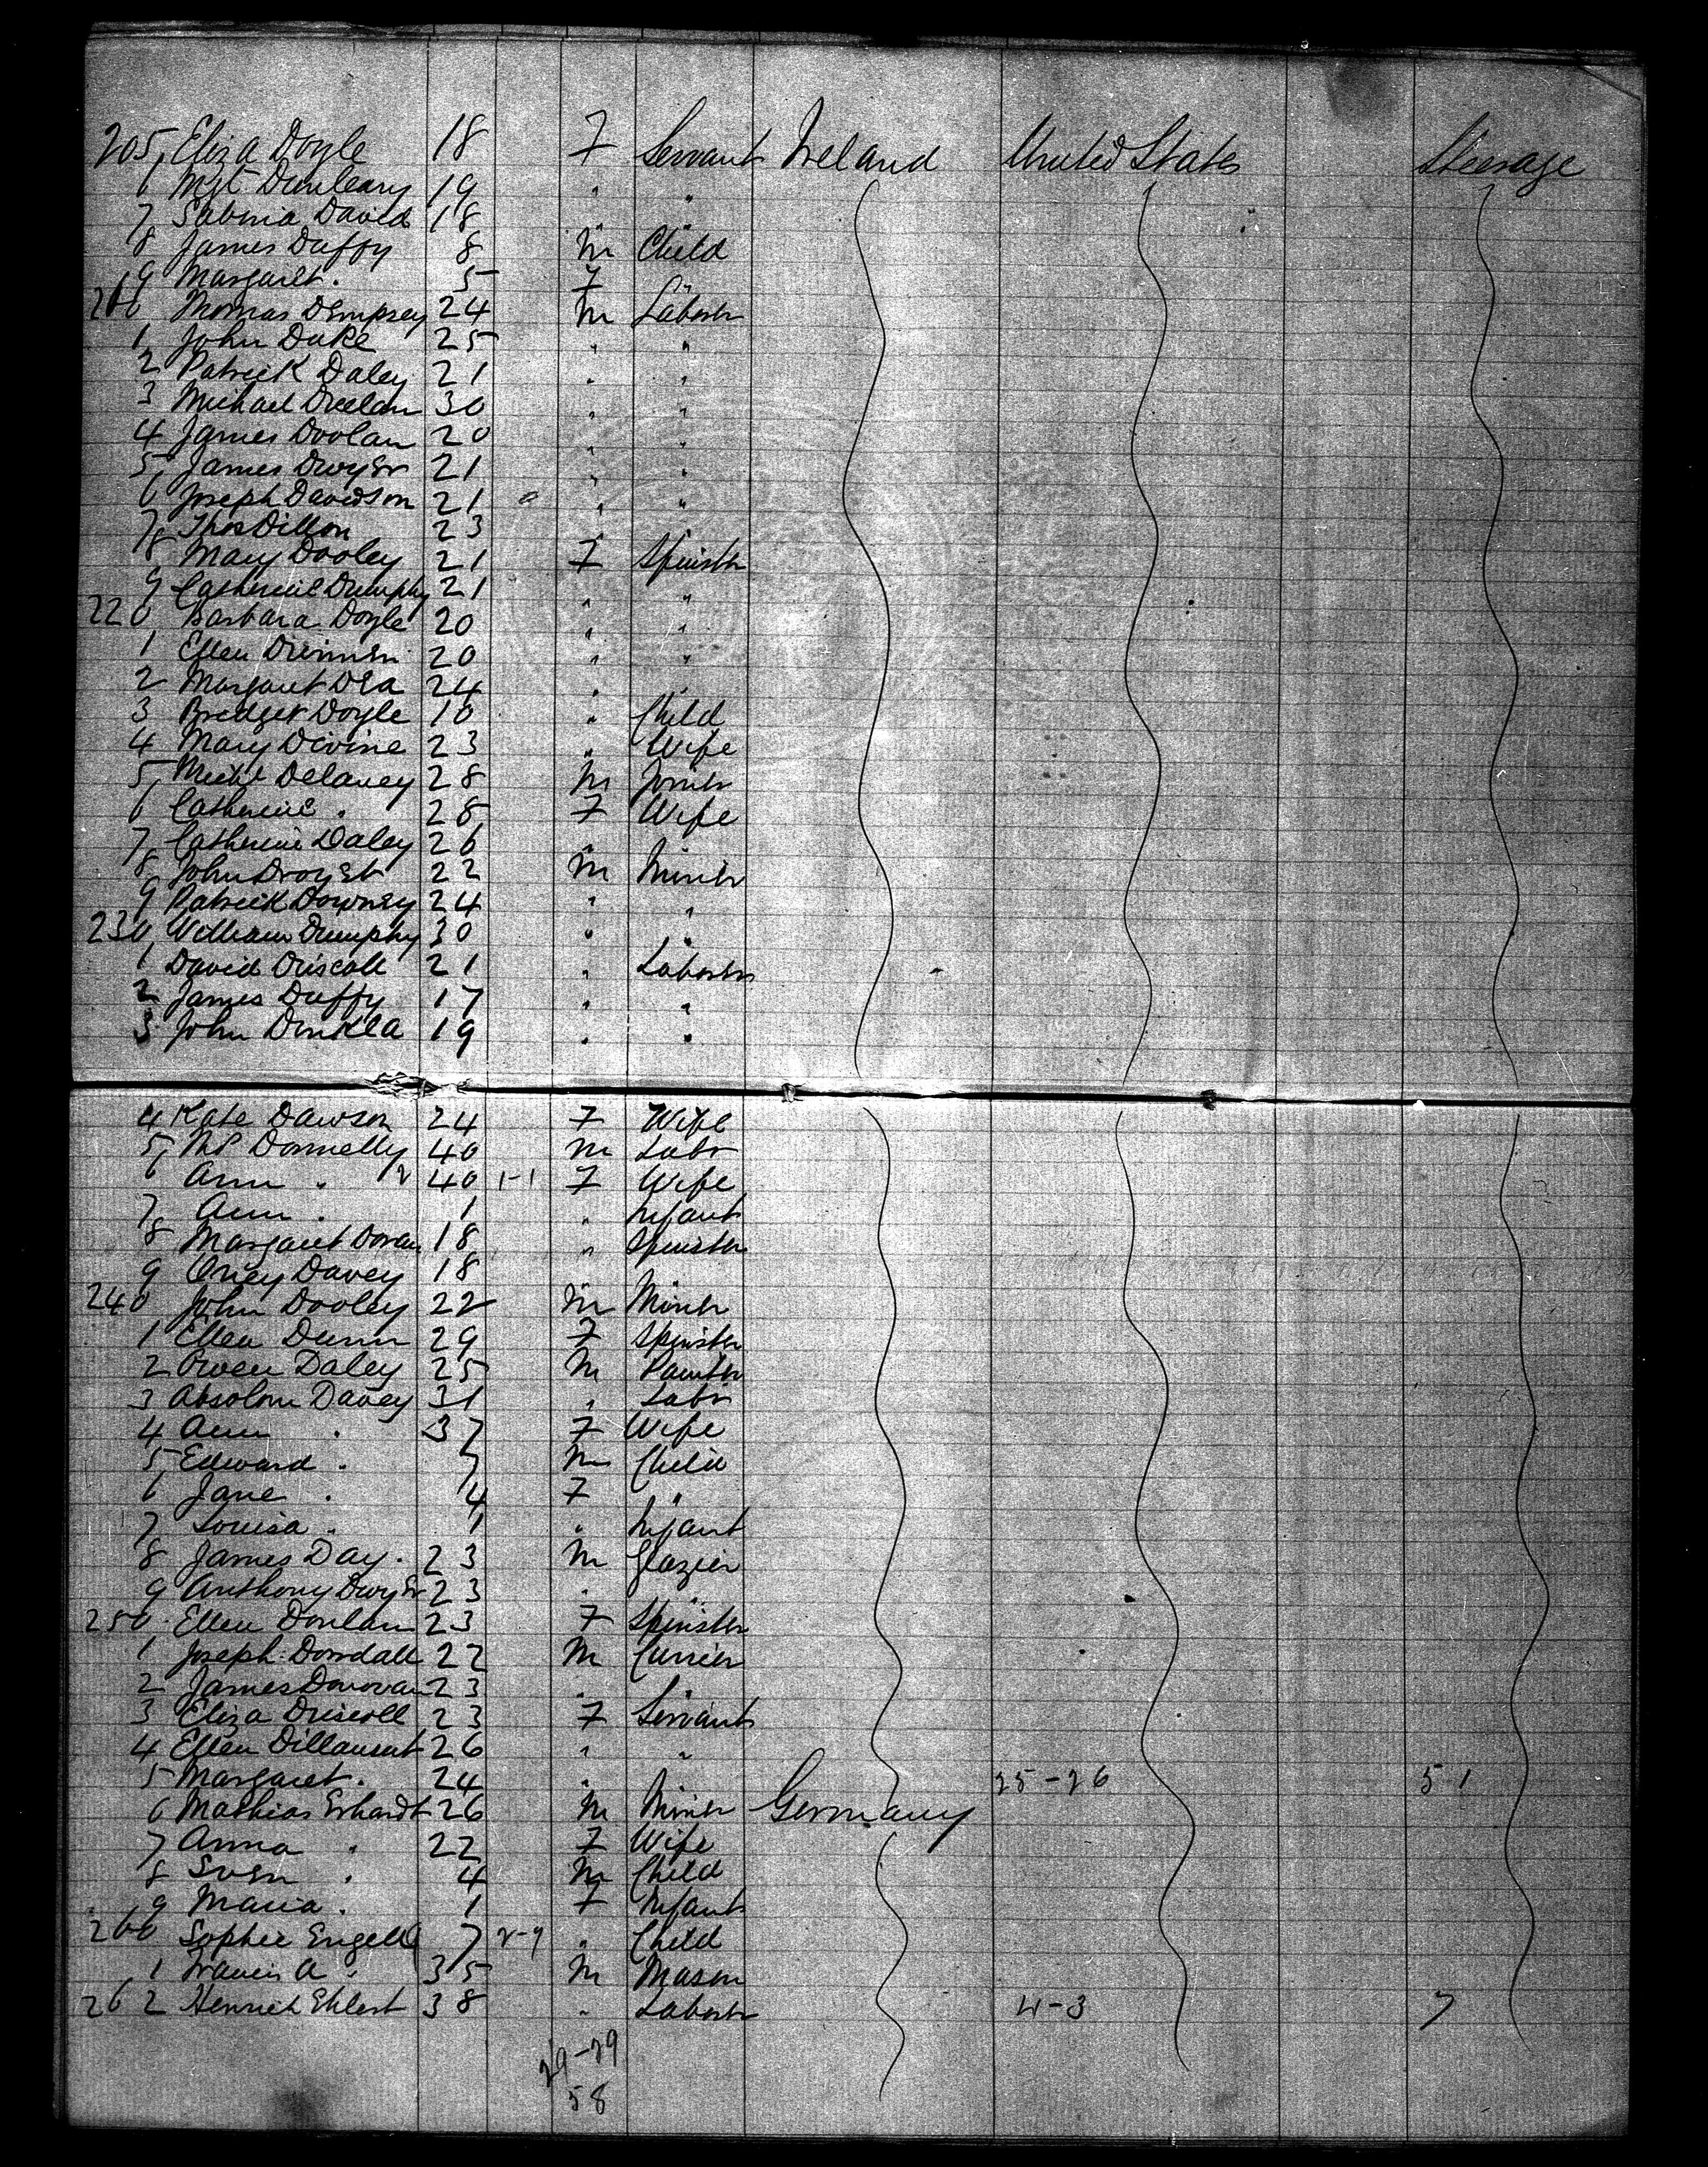 205 Eliza Doyle 18 F Servant Ireland United States Steerage
6 Mgt Dunleavy 19 " "
7 Sabina David 18 " "
8 James Duffy 8 M Child
9 Margaret . 5 F "
210 Thomas Dempsey 24 M Laborer
1 John Duke 25 " "
2 Patrick Daley 21 " "
3 Michael 30 " "
4 James Doolan 20 " "
5 James Dwyer 21 " "
6 Joseph Davidson 21 " "
7 Thos Dillon 23 " "
8 Mary Dooley 21 F Spinster
9 Catherine Dumphy 21 " "
220 Barbara Doyle 20 " "
1 Ellen 20 " "
2 Margaret Dea 24 " "
3 Bridget Doyle 10 " Child
4 Mary Divine 23 " Wife
5 Michl Delaney 28 M Joiner
6 Catherine . 28 F Wife
7 Catherine Daley 26 " "
8 John 22 M Miner
9 Patrick Downey 24 " "
230 William Dumphy 30 " "
1 David Driscoll 21 " Laborer
2 James Duffy 17 " "
3 John 19 " "
4 Kate Dawson 24 F Wife
5 Donnelly 40 M Labr
6 Ann . 40 1-1 F Wife
7 Ann . 1 " Infant
8 Margaret Doran 18 " Spinster
9 Davey 18 " "
240 John Dooley 22 M Miner
1 Ellen Dunn 29 F Spinster
2 Owen Daley 25 M Painter
3 Absolom Davey 31 " Labr
4 Ann . 37 F Wife
5 Edward . 7 M Child
6 Jane . 4 F "
7 Louisa . 1 " Infant
8 James Day . 23 M Glazier
9 Anthony Dwyer 23 " "
250 Ellen Donlan 23 F Spinster
1 Joseph Dowdall 22 M Currier
2 James Donovan 23 " "
3 Eliza Driscoll 23 F Servant
4 Ellen 26 " "
5 Margaret . 24 " " 25-26 51
6 Mathias Erhardt 26 M Miner Germany
7 Anna . 22 F Wife
8 Sven . 4 M Child
9 Maria . 1 F Infant
260 Sophie Engell 7 2-9 " Child
1 Francis A . 35 M Mason
262 Henrich Ehlert 38 " Laborer 4-3 7
29-29
58